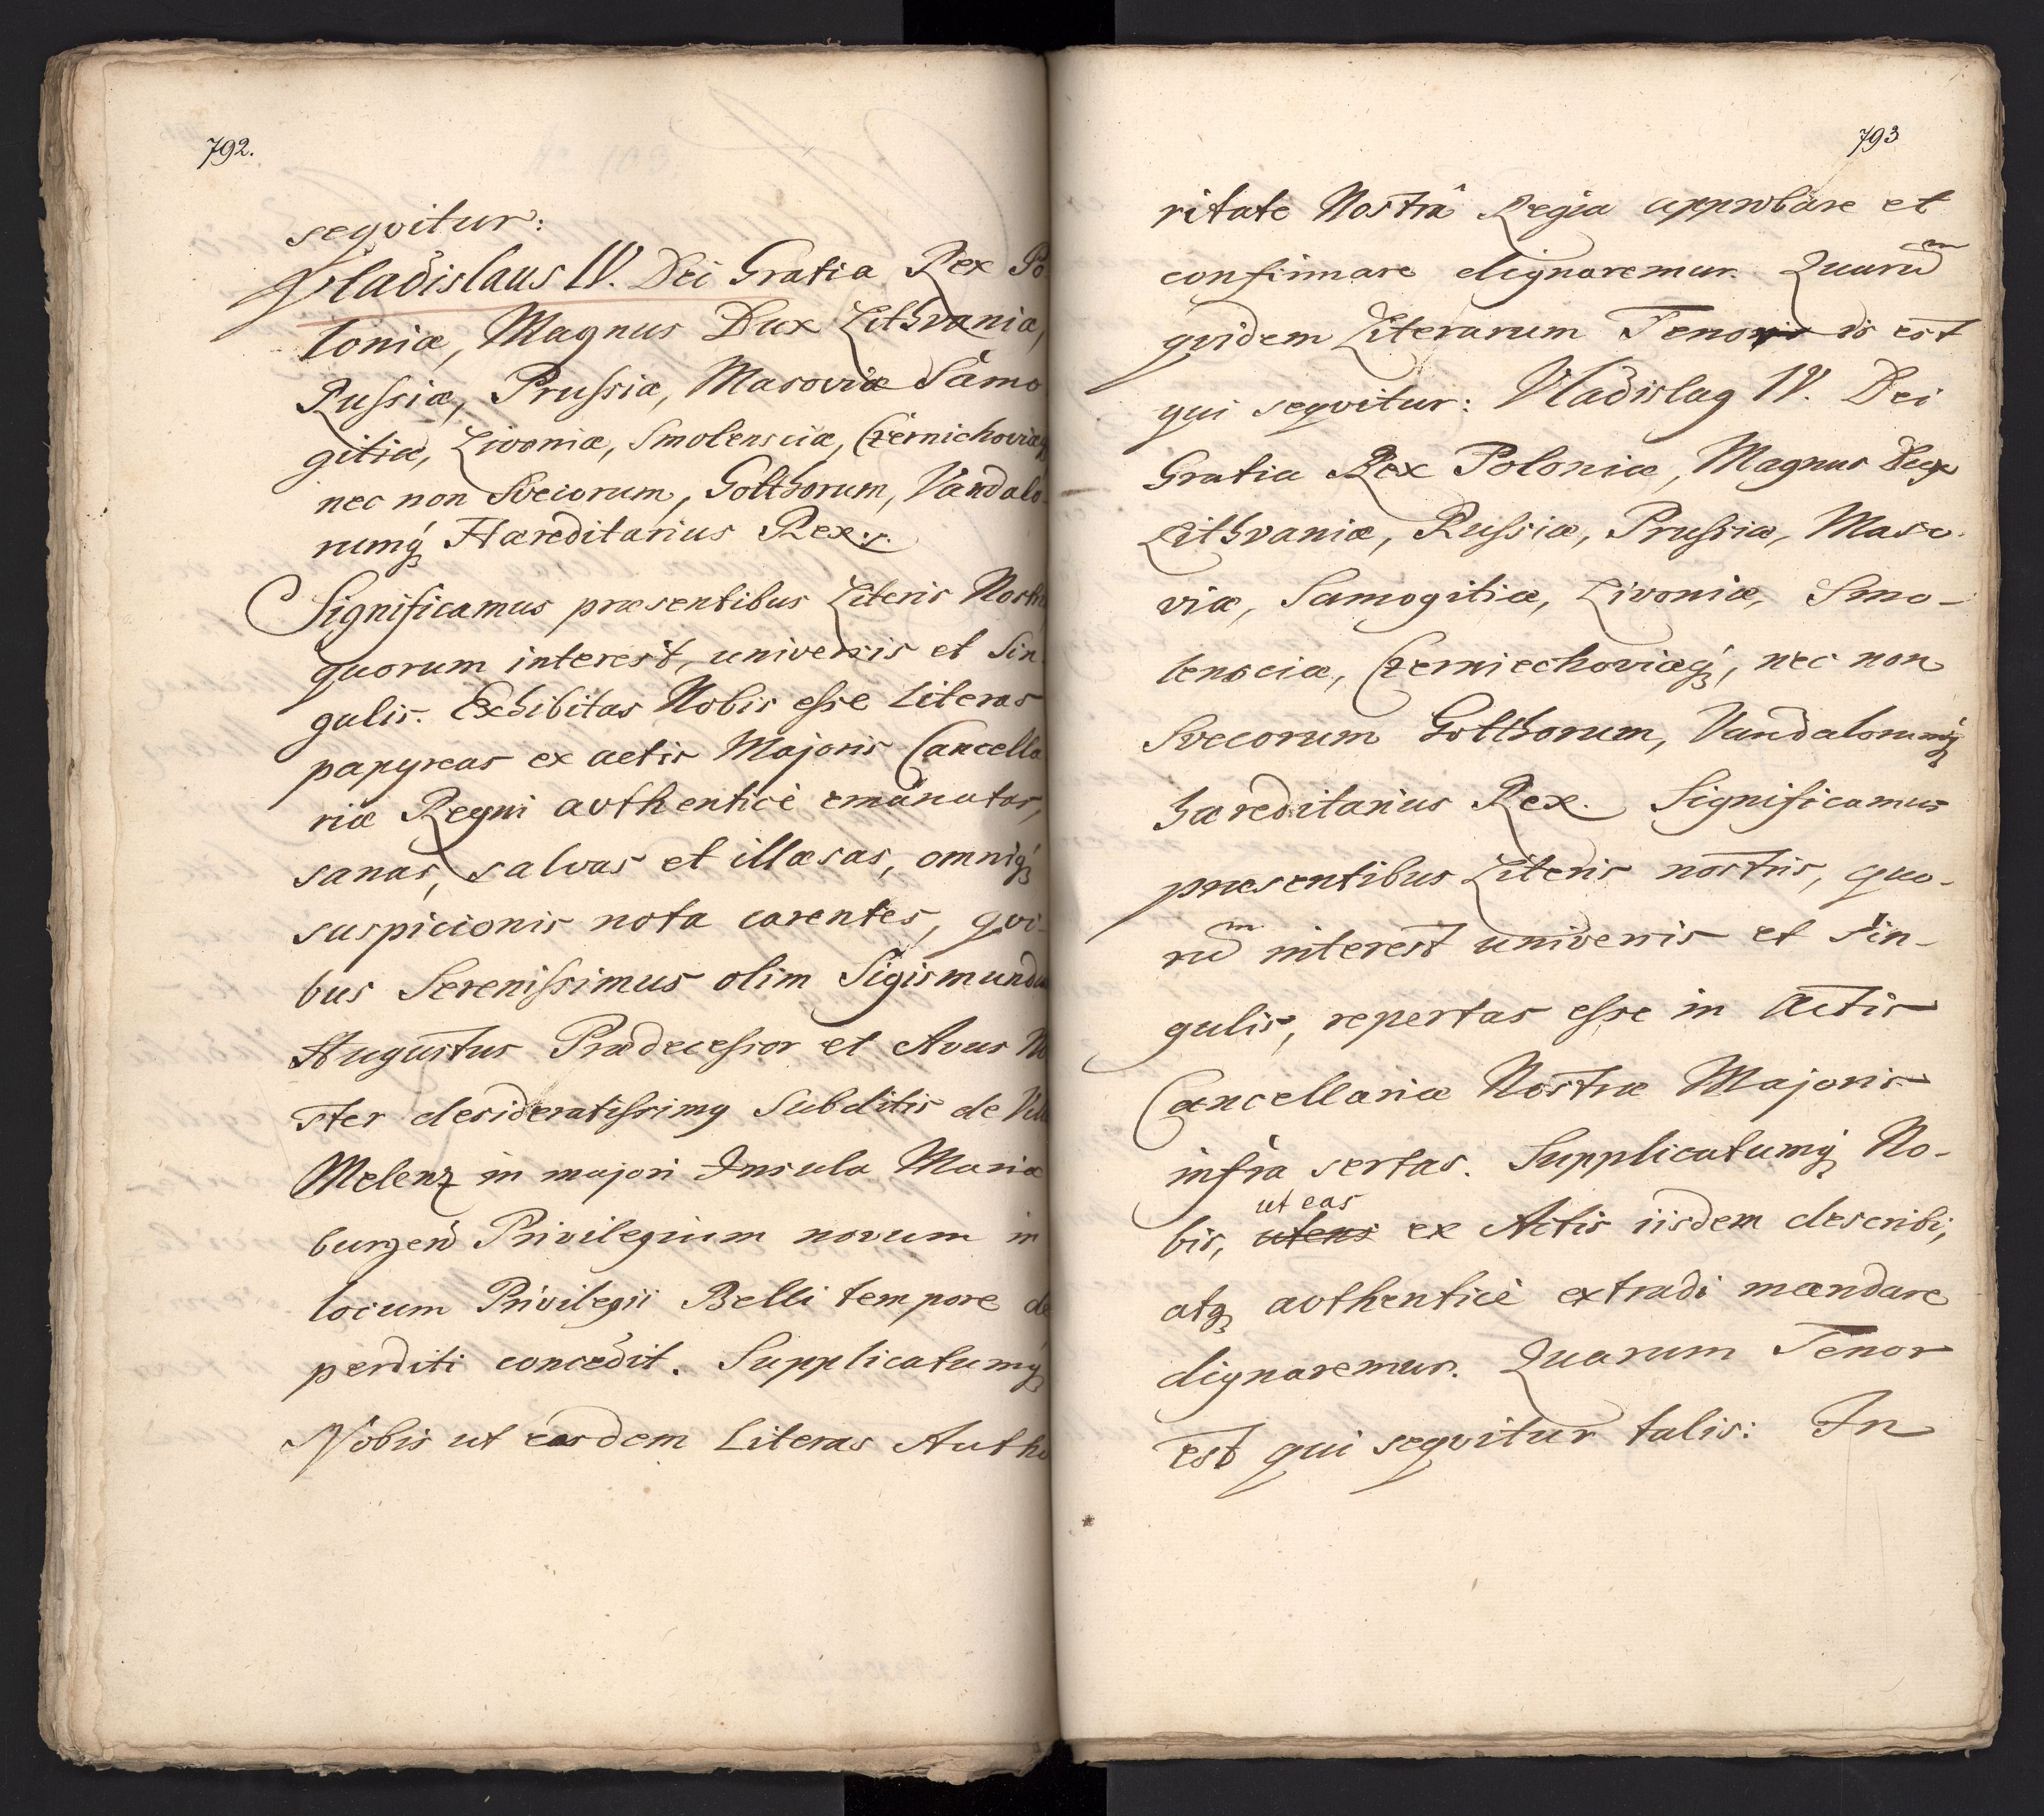 792.
seqvitur:
Vladislaus IV. Dei Gratia Rex Po
loniæ, Magnus Dux Lithvaniæ,
Russiæ, Prussiæ, Masoviæ Samo
gitiæ, Livoniæ, Smolensciæ, Czernichoviæq́
nec non Svecorum, Gotthorum, Vandalo-
rumq́ Hæreditarius Rex.
Significamus præsentibus Literis Nostris
quorum interest, universis et Sin
gulis. Exhibitas Nobis esse Literas
papyreas ex actis Majoris Cancella
riæ Regni avthenticè emanatas,
sanas, salvas et illæsas, omniq́
suspicionis nota carentes, qvi-
bus Serenissimus olim Sigismundus
Augustus Prædecessor et Avus No
ster desideratissimq Subditis de Villa
Melenz in majori Insula Mariæ
burgen̄ Privilegium novum in
locum Privilegii Belli tempore de
perditi concedit. Supplicatumq́
Nobis ut easdem Literas Autho
793
ritate Nostrâ Regia approbare et
confirmare dignaremur. Quarum
qvidem Literarum Tenor is est
qui seqvitur: Vladislaq IV. Dei
Gratia Rex Poloniæ, Magnus Dux
Lithvaniæ, Russiæ, Prussiæ, Maso-
viæ, Samogitiæ, Livoniæ, Smo-
lensciæ, Czerniechoviæq́, nec non
Svecorum Gotthorum, Vandalorumq́
hæreditarius Rex. Significamus
præsentibus Literis nostris, quo-
rum interest universis et sin-
gulis, repertas esse in Actis
Cancellariæ Nostræ Majoris
infra sertas. Supplicatumq́ No-
ut eas
bis, utens ex Actis iisdem describi,
atq́ avthenticè extradi mandare
dignaremur. Quarum Tenor
est qui seqvitur talis: In